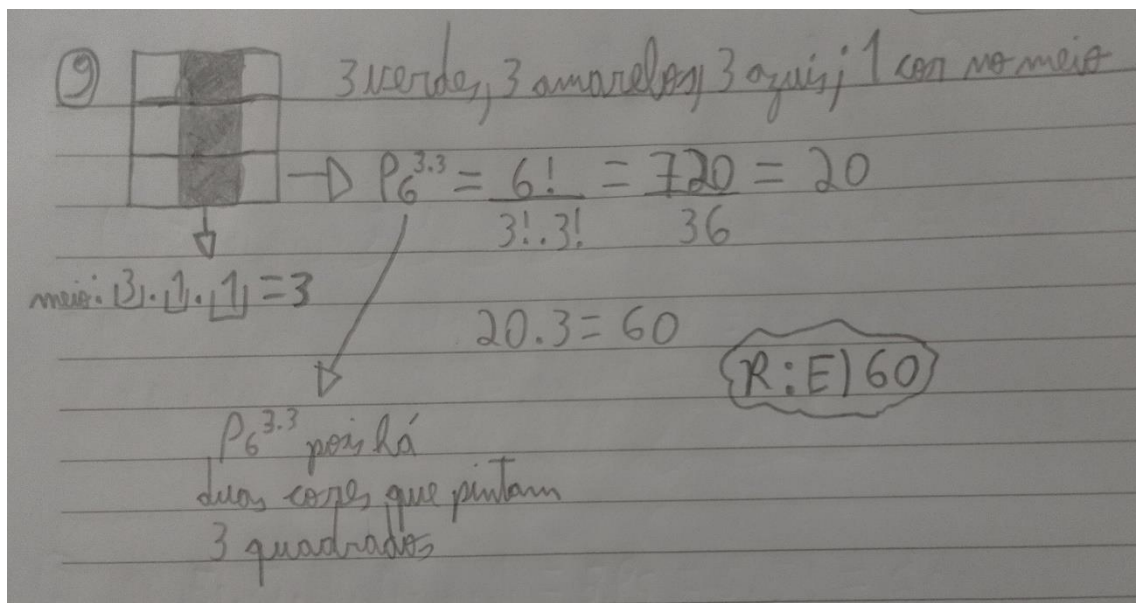 9 3 verdes, 3 amarelos, 3 azuis; 1 cor no meio
P₆^3.3 = 6!/3!.3! = 720/36 = 20
meio: 3.1.1 = 3
20.3 = 60
R: E) 60
P₆^3.3 pois há
duas cores que pintam
3 quadrados